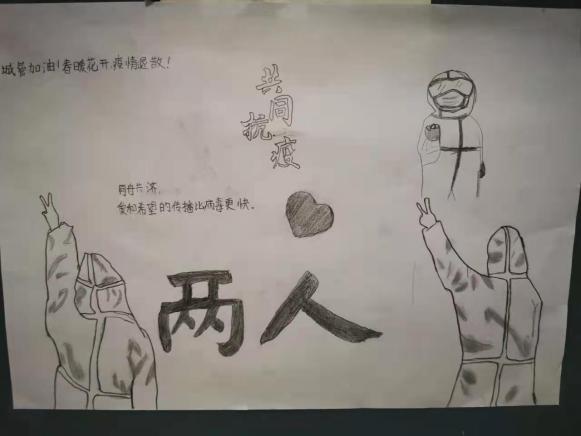 城管加油!春暖花开.疫情退散!
共同抗疫
同舟共济,
爱和希望的传播比病毒更快。
两人